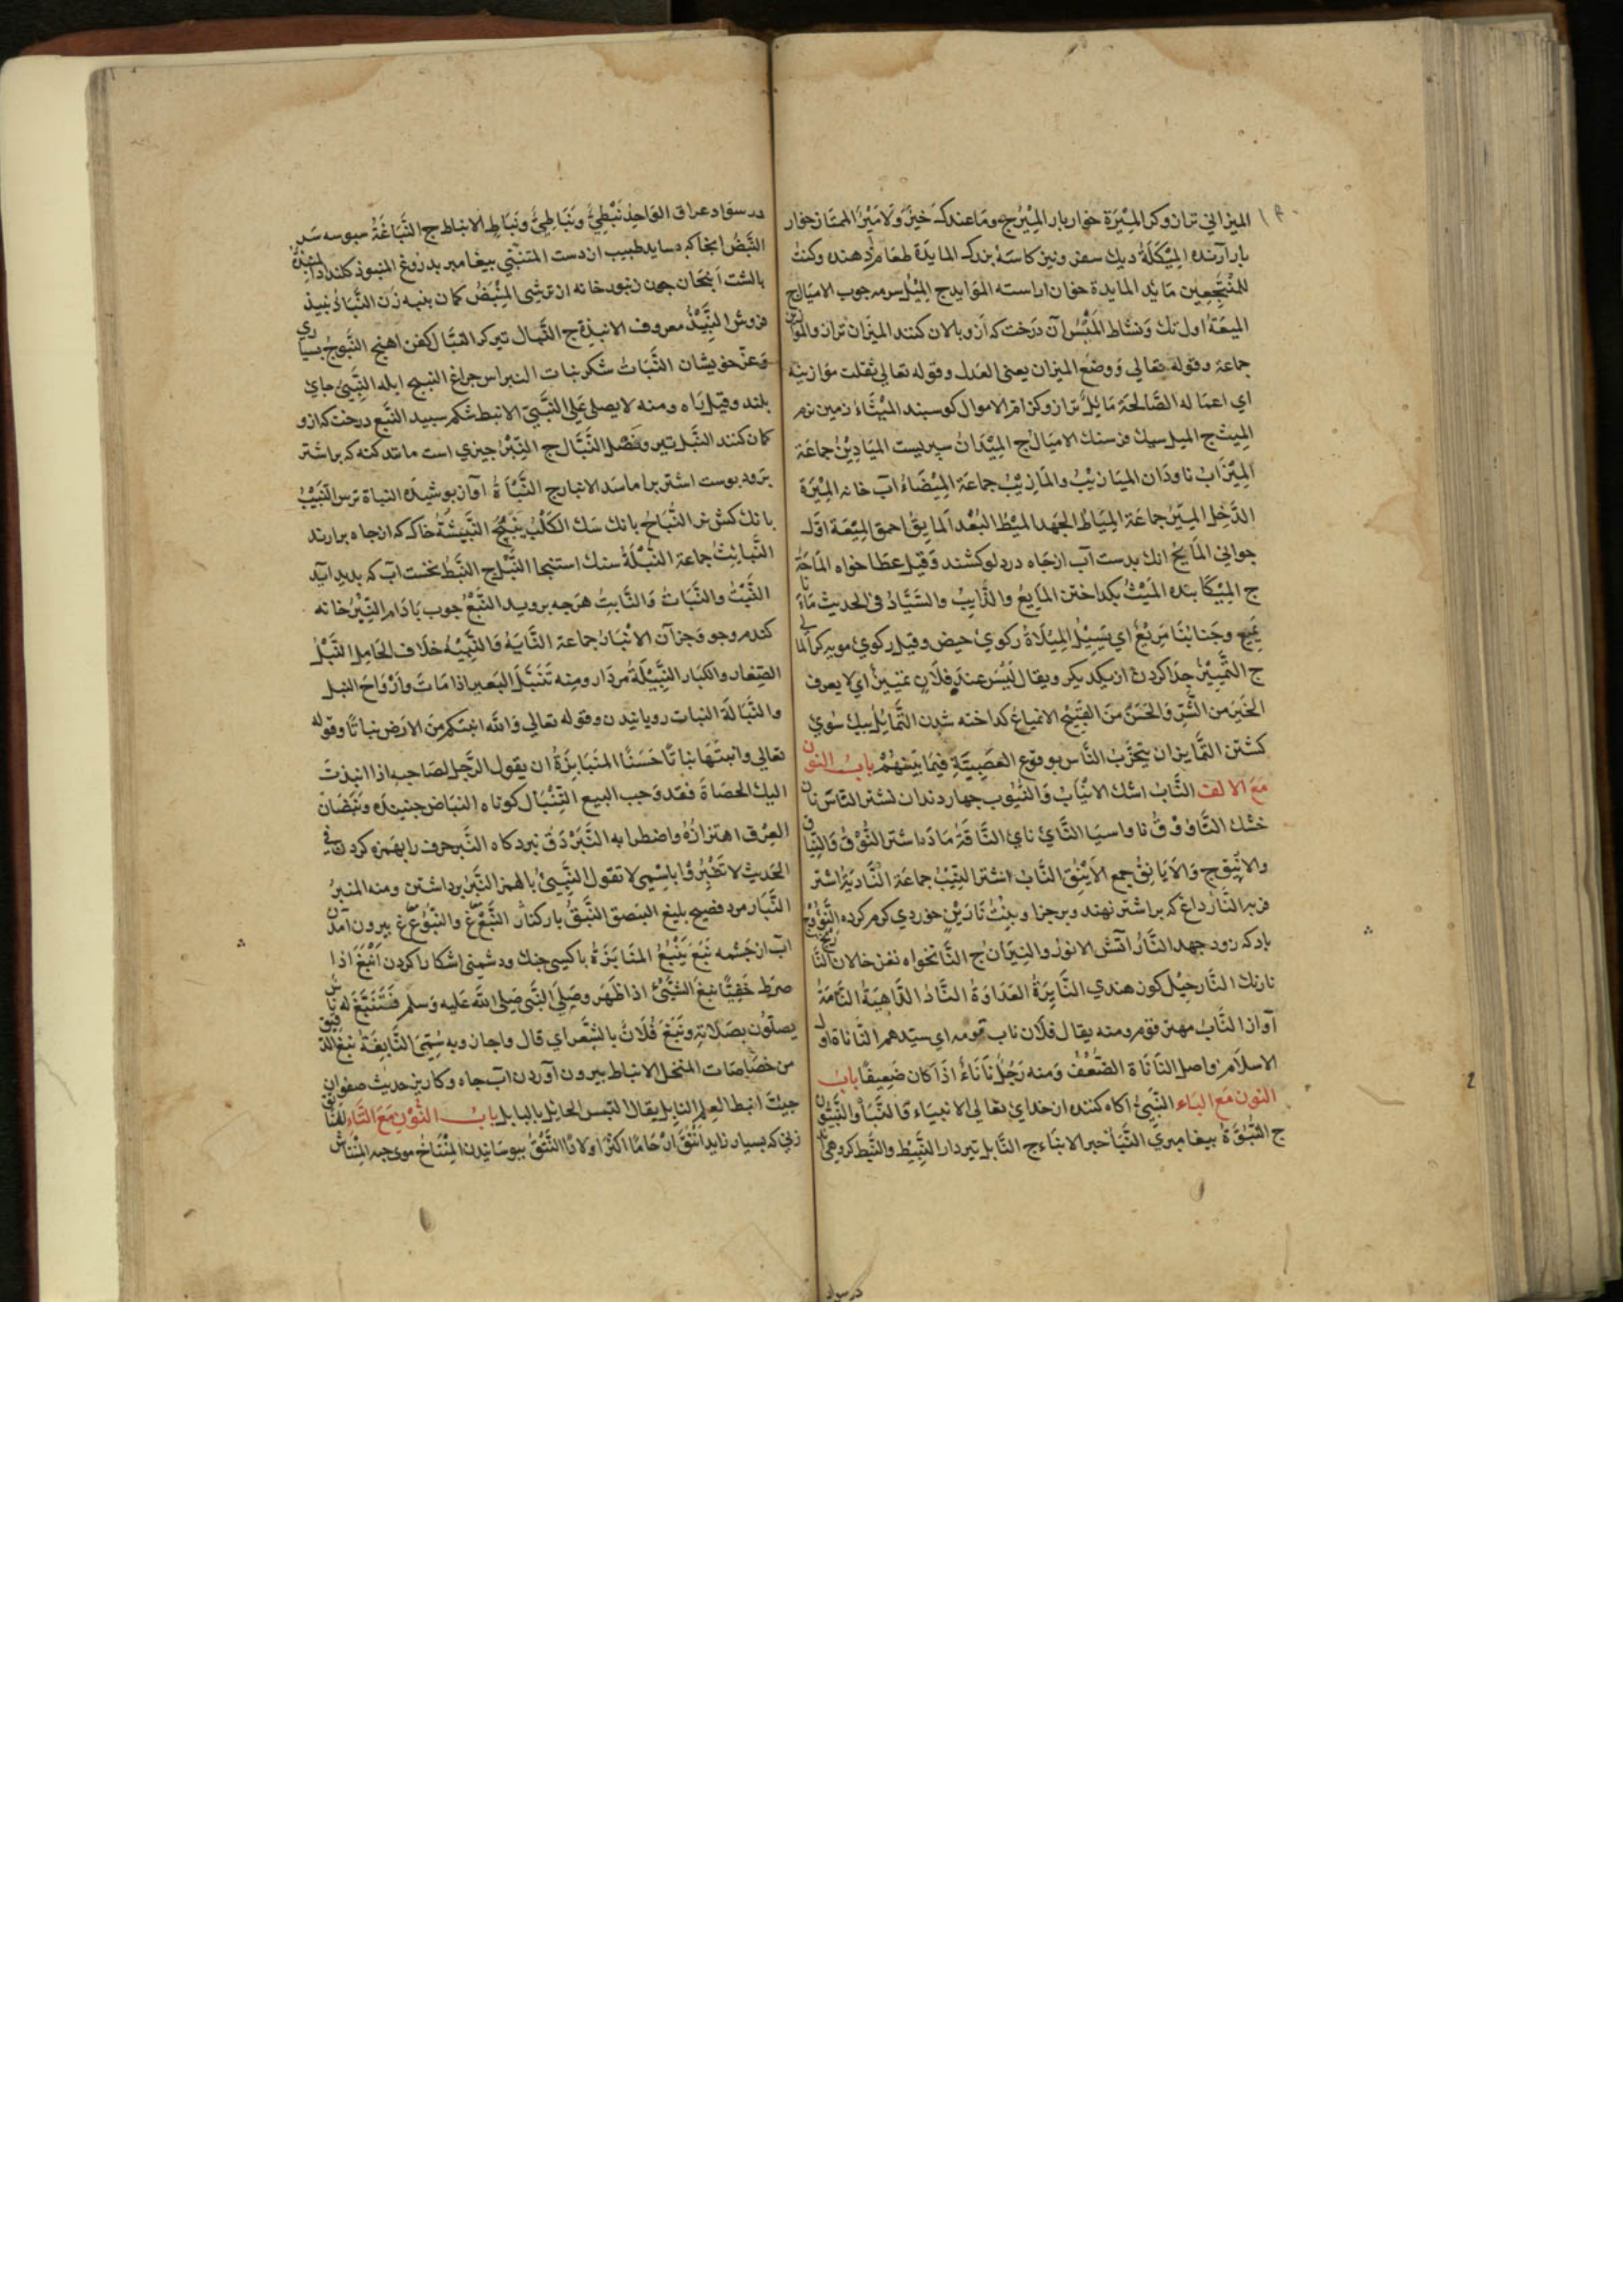 الميزاني ترازوكر الميرة خوار بار الميرج وما عندك خير ولا مير الممتاز خوار
بار آرنده الميكلة ديك سفر ونيز كاسه بزرك المايدة طعام دهنده وكنت
للمنتجعين مائد المايدة خوان اراسته الموايدج الميل سرمه جوب الاميالج
الميعة اول تك ونشاط الميس آن درخت كه ازو بالان كنند الميزان ترازو
جماعة وقوله تعالي ووضع الميزان يعني العدل وقوله تعالي ثقلت موازينه
اي اعماله الصالحة مايل ترازو كرام الاموال كوسبند الميثاء زمين نرم
الميث ج الميل سيك فرسنك الاميالج الميدان سپريست الميادين جماعة
الميزاب ناودان الميازيب والمازيب جماعة الميضاء آب خانه الميرة
الدخل الميرجماعة المياط الجهد الميط البعد المايق احمق الميعة اول
جواني المايح انك بدست آب ازجاه در دلو كشند وقيل عطا خواه الماحة
ج الميكا بنده الميث بكداختن المايع والذايب والسياد في الحديث
يميع وجنابنا مريع اي يسيل الميلاة ركوي حيض وقيل ركوي مويه كر
ج التمييز جدا كردن از يكديكر ويقال ليس عند فلان تمييز اي لا يعرف
الخير من الشر والحسن من القبيح الانمياع كداخته شدن التمايل بيك سوي
كشتن التمايزان يتحزب الناس بوقوع العصبية فيما بينهم باب النون
مع الالف الناب اشك الانياب والنيوب جهار دندان نشتر الناس نان
خشك الناووق ناو اسيا الناي ناي الناقة ماده اشتر النوق والنياق
والانيق ج والايانق جمع الاينق الناب اشتر النيب جماعة النادية اشتر
فربر النار داغ كه بر اشتر نهند وبرجزا وبنت نارين خوردي كرم كرده
باد كه زود جهد النار آتش الانور والنيران ج النانخواه نغز خالان
نارنك النارجيل كوز هندي النايرة العداوة الناد الداهية النامة
آواز الناب مهتر قوم ومنه يقال فلان ناب قومه اي سيدهم الناناة اول
الاسلام واصل الناناة الضعف ومنه رجل ناناء اذا كان ضعيفا باب
النون مع الباء النبي آكاه كننده از خداي تعالي الانبياء
ج النبوة بيغامبري النبأ خبر الانباء ج النابل تيردار النبيط والنبط كروهي
در سواد
در سواد عراق الواحد نبطي ونباطي ونباط الانباط ج النباغة سبوسه سر
النبض انجا كه بسايد طبيب از دست المتنبي بيغامبر بدروغ المنبوذ
بالشت انبجان جون زنبور خانه از ترشي المنبض كمان بنبه زن النباذ نبيذ
فروش النبيذ معروف الانبذة ج النبال تيركر النبال كفن اهنج النبوج بسياري
وعز خويشان النبات شكر نبات النبراس جراغ النبيج ابله النبي جاي
بلند وقيل راه ومنه لا يصلي علي النبي الانبط شكم سبيد النبع درخت كه ازو
كمان كنند النبل تير وفضل النبال ج النبر جيزي است مانند كنه كه بر اشتر
برود بوست اشتر براماسد الانبار ج النبأة آواز بوشيده النباة ترس النبيب
بانك كش نر النباح بانك سك الكلب ينبح النبيشة خاك كه از جاه برارند
النبايث جماعة النبلة سنك استنجا النبل ج النبط نخست آب كه بديد آيد
النبت والنبات والنابت هرجه برويد النبع جوب بادام النبر خانه
كندم وجو وجزآن الانبار جماعة النباية والنبيه خلاف الخامل النبل
الصغار والكبار النبيلة مردار ومنه تنبل البعير اذا مات وارواح النبل
والنبالة النبات رويانيدن وقوله تعالي والله انبتكم من الارض نباتا وقوله
تعالي وانبتها نباتا حسنا المنابزة ان يقول الرجل لصاحبه اذا انبذت
اليك الحصاة فقد وجب البيع التنبال كوتاه النباض جنبنده ونبضان
العرق اهتزازه واضطرابه النبر دق نبرد كاه النبر حرف را بهمزه كردن في
الحديث لا تنبروا باسمي لا تقول النبي بالهمز النبر برداشتن ومنه المنبر
النبار مرد فصيح بليغ البنصق النبق بار كنار النبغ غ والنبوع ع غ بيرون آمدن
اب از جشمه نبع ينبع المنابزة باكسي جنك ودشمني اشكارا كردن انبغ اذا
ضرط خفيا نبغ الشيئ اذا ظهر وصلي النبي صلي الله عليه وسلم فتنبغ له ناس
يصلون بصلاته ونبغ فلان بالشعر اي قال واجاد وبه سمي النابغة نبغ الدقيق
من خصاصات المنخل الانباط بيرون آوردن اب جاه وكاريز حديث صفوان
جيئت انبط العلم النابل يقال التبس الحابل بالنابل باب النون مع التاء
زني كه بسيار زايد انتق ارحاما اكثر اولادا النتق ببوسانيدن المنتاخ موي جيه المنتاش